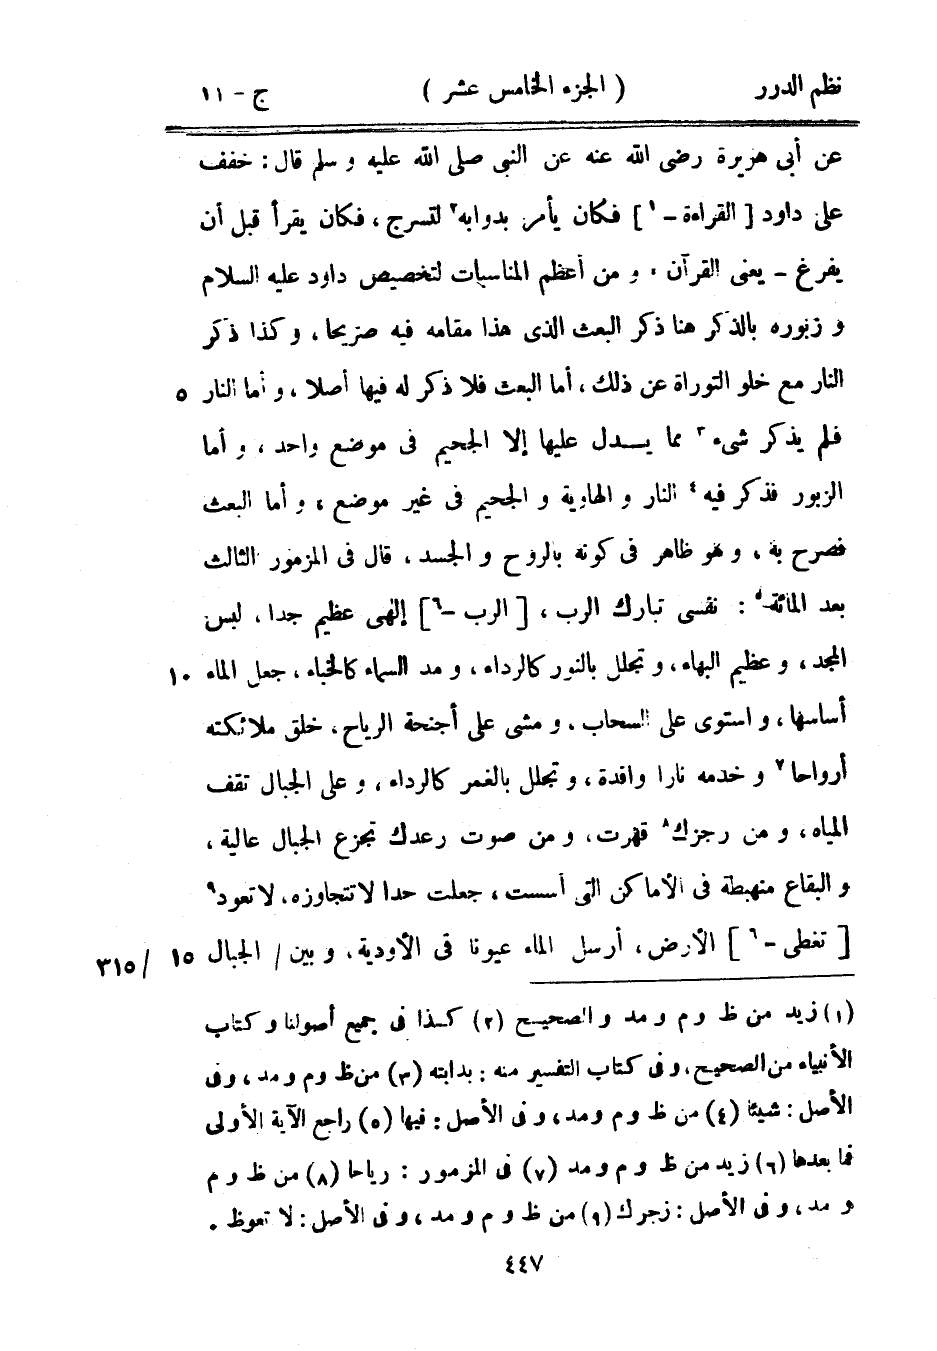 نظم الدرر ( الجزء الخامس عشر ) ج - ١١
عن أبى هريرة رضى الله عنه عن النبى صلى الله عليه و سلم قال : خفف
على داود [ القراءة - ١ ] فكان يأمر بدوابه٢ لتسرج ، فكان يقرأ قبل أن
يفرغ - يعنى القرآن ، و من أعظم المناسبات لتخصيص داود عليه السلام
و زبوره بالذكر هنا ذكر البعث الذى هذا مقامه فيه صريحا ، و كذا ذكر
النار مع خلو التوراة عن ذلك ، أما البعث فلا ذكر له فيها أصلا ، و أما النار ٥
فلم يذكر شىء٣ مما يــدل عليها إلا الجحيم فى موضع واحد ، و أما
الزبور فذكر فيه٤ النار و الهاوية و الجحيم فى غير موضع ، و أما البعث
فصرح به ، و هو ظاهر فى كونه بالروح و الجسد ، قال فى المزمور الثالث
بعد المائة٥ : نفسى تبارك الرب ، [ الرب - ٦ ] إلهى عظيم جدا ، لبس
المجد ، و عظيم البهاء ، و تجلل بالنور كالرداء ، و مد السماء كالخباء ، جعل الماء ١٠
أساسها ، و استوى على السحاب . و مشى على أجنحة الرياح ، خلق ملائكته
أرواحا٧ و خدمه نارا واقدة ، و تجلل بالغمر كالرداء ، و على الجبال تقف
المياه ، و من رجزك٨ قهرت ، و من صوت رعدك تجزع الجبال عالية ،
و البقاع منهبطة فى الأماكن التى أسست ، جعلت حدا لا تتجاوزه ، لا تعود٩
[ تغطى - ٦ ] الأرض ، أرسل الماء عيونا فى الأودية ، و بين / الجبال ١٥ / ٣١٥
(١) زيد من ظ و م و مد و الصحيح (٢) كذا فى جميع أصولنا و كتاب
الأنبياء من الصحيح ، و فى كتاب التفسير منه : بدابته (٣) من ظ و م و مد ، و فى
الأصل : شيئا (٤) من ظ و م و مد ، و فى الأصل : فيها (٥) راجع الآية الأولى
فما بعدها (٦) زيد من ظ و م و مد (٧) فى المزمور : رياحا (٨) من ظ و م
و مد ، و فى الأصل : زجرك (٩) من ظ و م و مد ، و فى الأصل : لا تعوظ .
٤٤٧